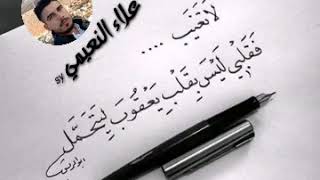 علاء النعيمي
sy
لَا تَغِيبَ ....
فَقَلْبِي لَيْسَ بِقَلْبِ يَعْقُوبَ لِيَتَحَمَّلَ